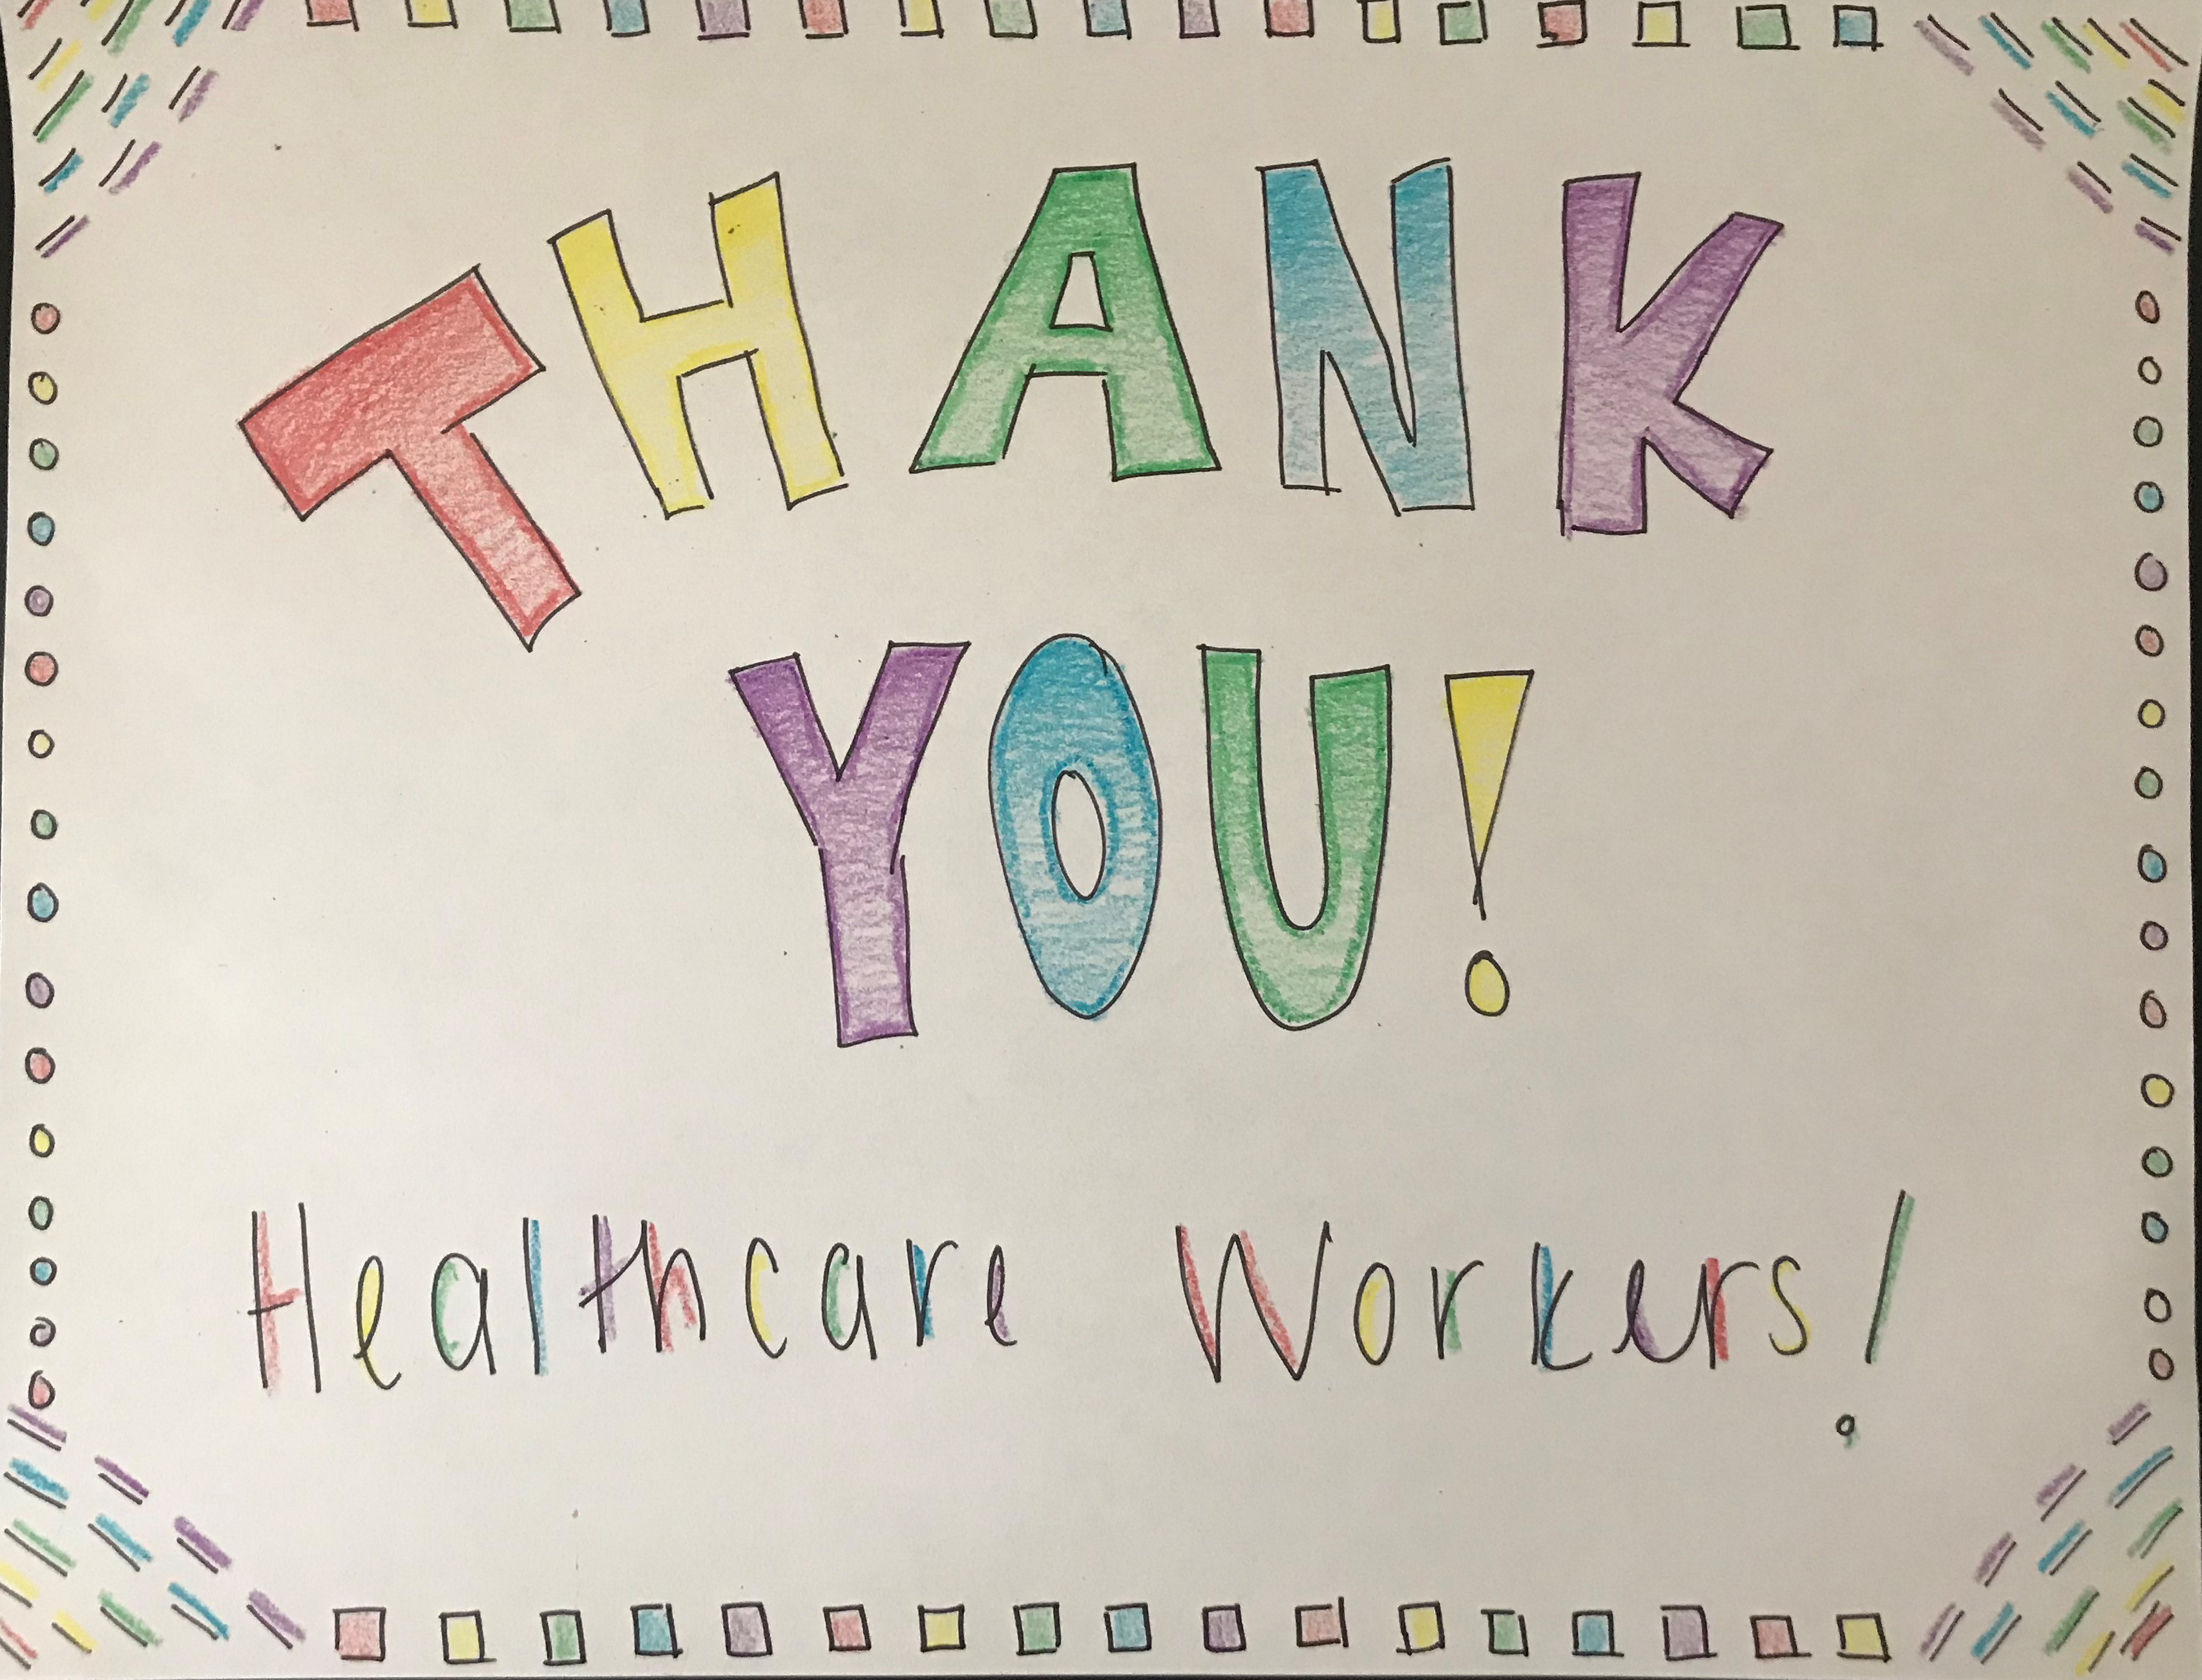 THANK
YOU!
Healthcare Workers!